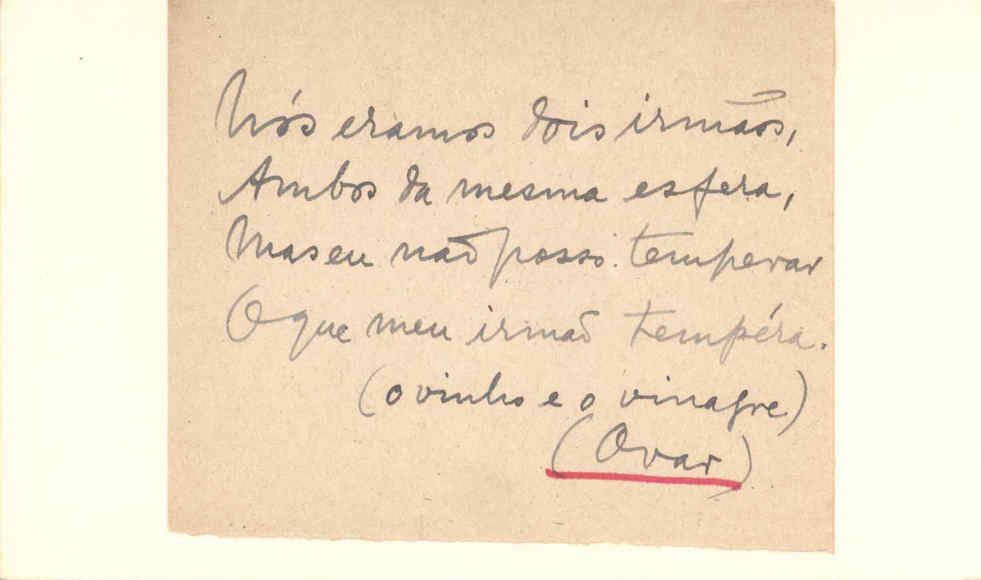 Nós eramos dois irmãos,
Ambos da mesma esfera,
Mas eu não posso temperar
O que meu irmão tempéra.
(o vinho e o vinagre)
(Ovar)